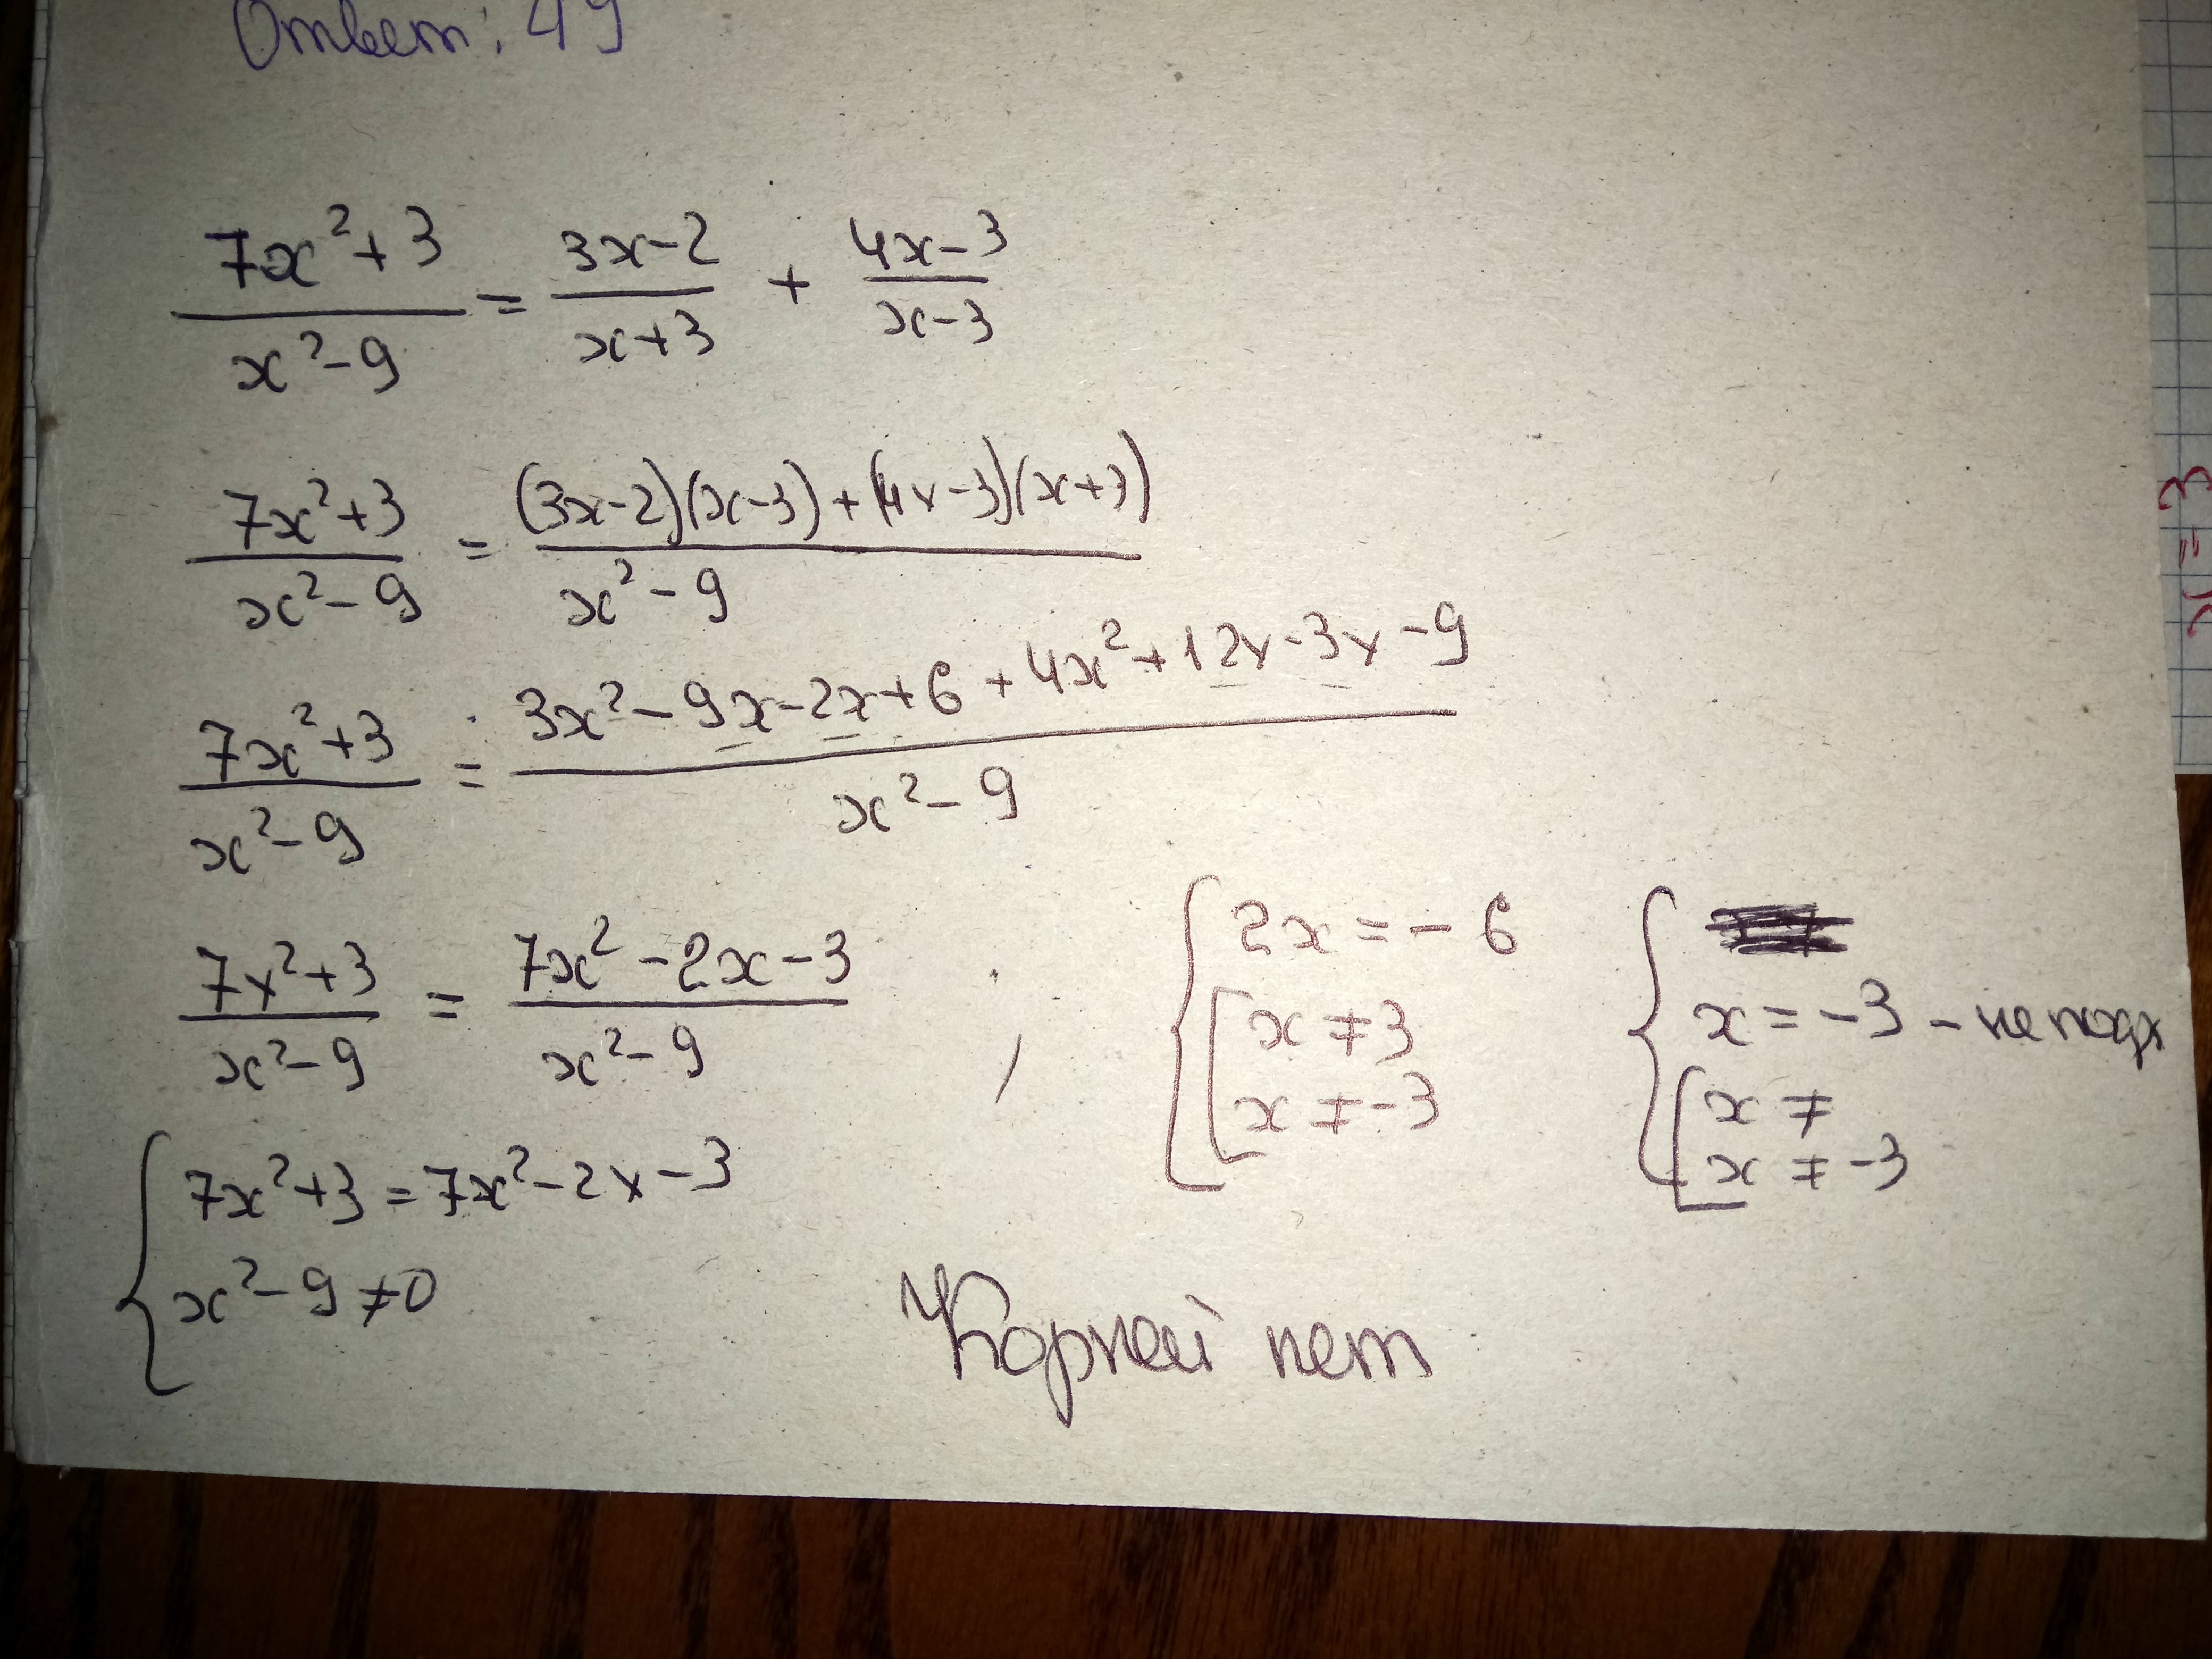 Ответ: 49
(7x²+3)/(x²-9) = (3x-2)/(x+3) + (4x-3)/(x-3)
(7x²+3)/(x²-9) = ((3x-2)(x-3)+(4x-3)(x+3))/(x²-9)
(7x²+3)/(x²-9) = (3x²-9x-2x+6+4x²+12x-3x-9)/(x²-9)
(7x²+3)/(x²-9) = (7x²-2x-3)/(x²-9)
{ 7x²+3=7x²-2x-3
x²-9≠0
{ 2x=-6
[ x≠3
x≠-3
{ x=-3 - не подх
[ x≠
x≠-3
Корней нет
x=3